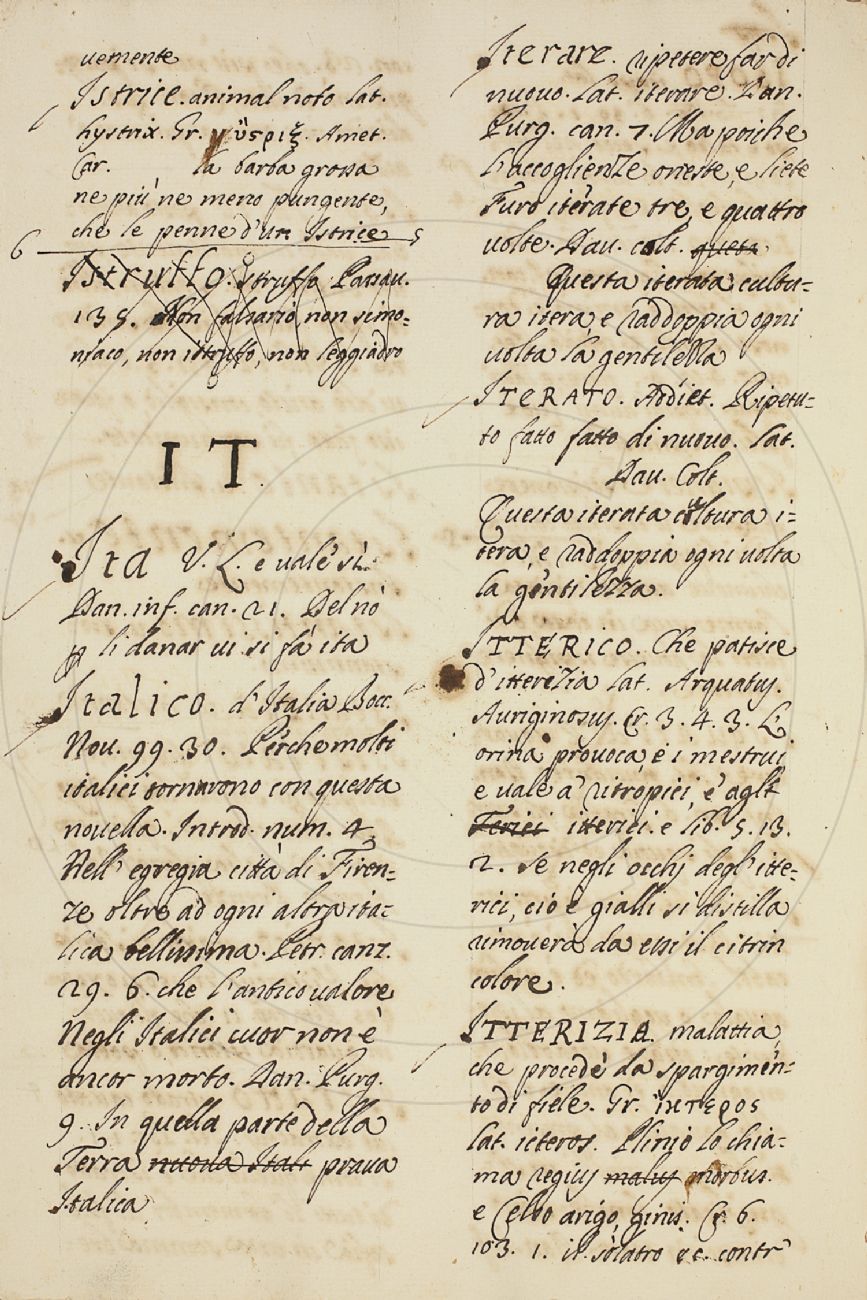 uemente
Istrice. animal noto lat.
hystrix. Gr. ὕσριξ. Amet.
Car. la barba grossa
ne più, ne meno pungente,
che le penne d'un Istrice
6 5
Istruffo. Istruffo Passau.
135. Non falsario, non simo=
niaco, non istruffo, non leggiadro
IT.
Ita V. L. e uale sì.
Dan. inf. can. 21. Del nò
li danar ui si fà ita
Italico. d'Italia Bocc.
Nou. 99. 30. Perche molti
italici tornarono con questa
nouella. Introd. num. 4.
Nell' egregia città di Firen=
ze oltre ad ogni altra ita=
lica bellissima. Petr. canz.
29. 6. che l'antico ualore
Negli Italici cuor non è
ancor morto. Dan. Purg.
9. In quella parte della
Terra nuoua Itali praua
Italica
Iterare. ripetere far di
nuouo. Lat. iterare. Dan.
Purg. can. 7. Ma poiche
l'accoglienze oneste, e liete
Furo iterate tre, e quattro
uolte. Dau. colt. questa
Questa iterata cultu=
ra itera, e raddoppia ogni
uolta la gentilezza
ITERATO. Addiet. Ripetu=
to fatto fatto di nuouo. Lat.
Dau. Colt.
Questa iterata coltura i=
tera, e raddoppia ogni uolta
la gentilezza.
ITTERICO. Che patisce
d'itterizia Lat. Arquatus.
Auriginosus. Cr. 3. 4. 3. L'
orina prouoca, e i mestrui
e uale a' ritropici, e agl'
Terici itterici. e lib. 5. 13.
2. Se negli occhj degl'itte=
rici, cioè gialli si distilla
rimouerà da essi il citrin
colore.
ITTERIZIA. malattia,
che procede da spargimen=
to di fiele. Gr. ἴκτερος
Lat. icteros. Plinio lo chia=
ma regius malus morbus.
e Celso arigo, ginis. Cr. 6.
103. 1. il solatro ec. contr'